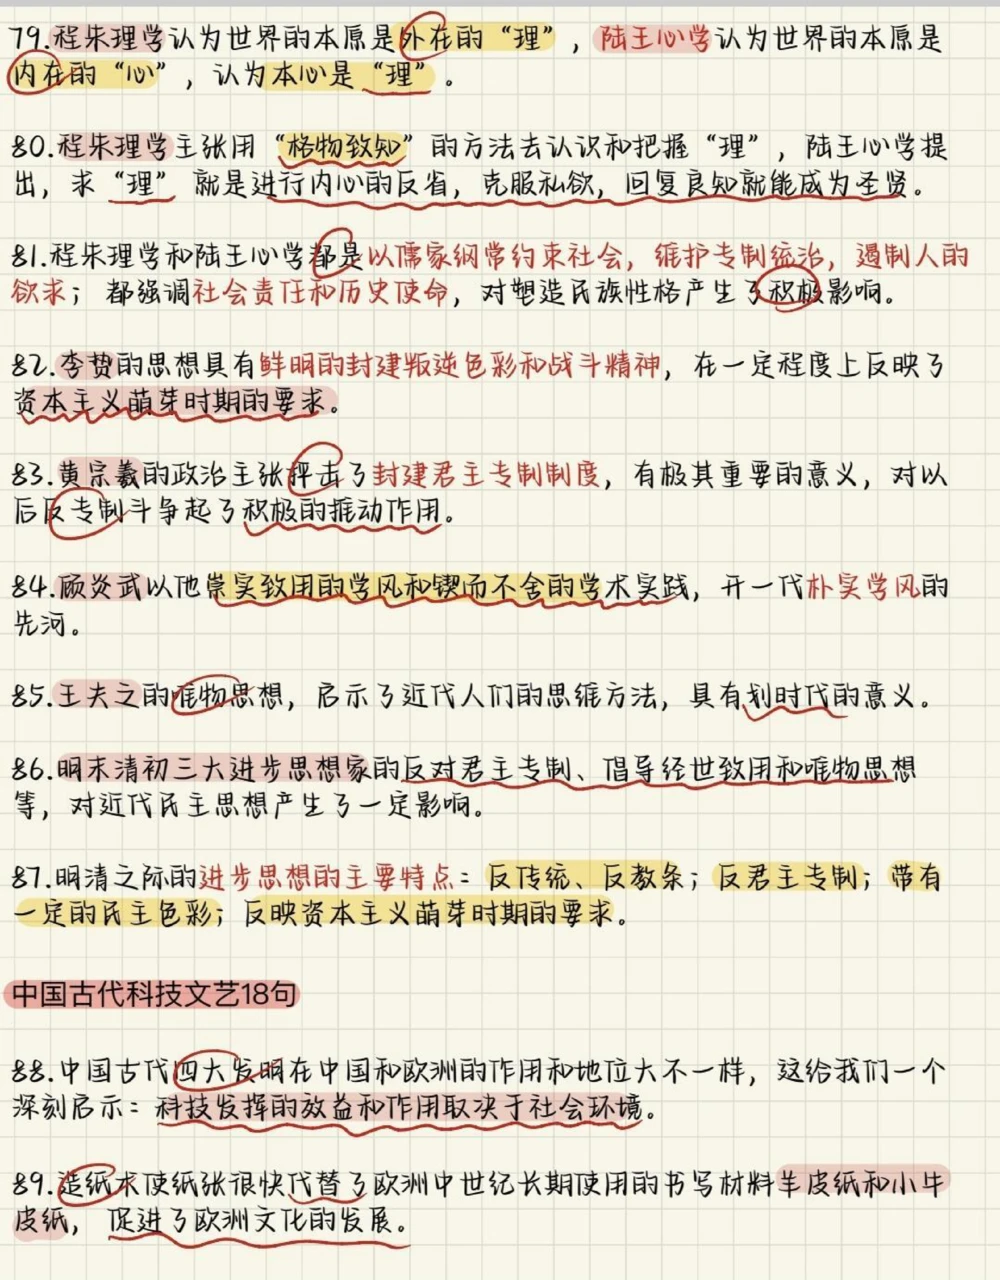 79.程朱理学认为世界的本原是外在的“理”，陆王心学认为世界的本原是
内在的“心”，认为本心是“理”。
80.程朱理学主张用“格物致知”的方法去认识和把握“理”，陆王心学提
出，求“理”就是进行内心的反省，克服私欲，回复良知就能成为圣贤。
81.程朱理学和陆王心学都是以儒家纲常约束社会，维护专制统治，遏制人的
欲求；都强调社会责任和历史使命，对塑造民族性格产生了积极影响。
82.李贽的思想具有鲜明的封建叛逆色彩和战斗精神，在一定程度上反映了
资本主义萌芽时期的要求。
83.黄宗羲的政治主张抨击了封建君主专制制度，有极其重要的意义，对以
后反专制斗争起了积极的推动作用。
84.顾炎武以他崇实致用的学风和锲而不舍的学术实践，开一代朴实学风的
先河。
85.王夫之的唯物思想，启示了近代人们的思维方法，具有划时代的意义。
86.明末清初三大进步思想家的反对君主专制、倡导经世致用和唯物思想
等，对近代民主思想产生了一定影响。
87.明清之际的进步思想的主要特点：反传统、反教条；反君主专制；带有
一定的民主色彩；反映资本主义萌芽时期的要求。
中国古代科技文艺18句
88.中国古代四大发明在中国和欧洲的作用和地位大不一样，这给我们一个
深刻启示：科技发挥的效益和作用取决于社会环境。
89.造纸术使纸张很快代替了欧洲中世纪长期使用的书写材料羊皮纸和小牛
皮纸，促进了欧洲文化的发展。